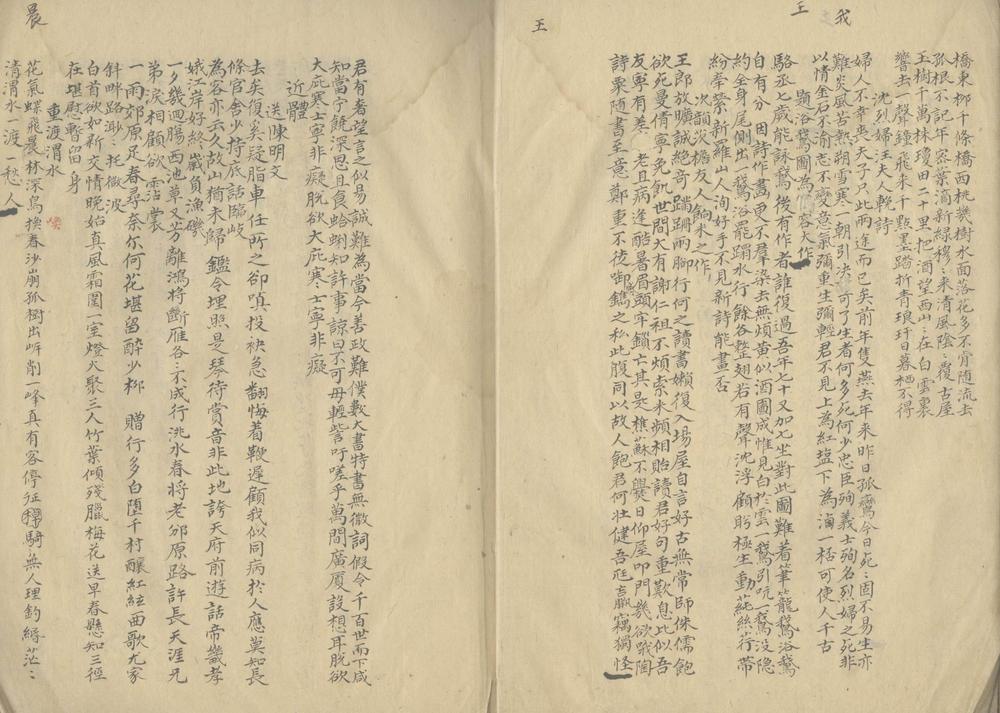 我
王
王
橋東柳千條橋西桃幾樹水面落花多不肯随流去
孤根不記年寒葉滴新綠穆〻来清風陰〻覆古屋
玉樹千萬林瓊田幾十里把酒望西山〻在白雲裏
響去一聲鐘飛来千點墨踏折青琅玕日暮栖不得
沈烈婦汪夫人輓詩
婦人不幸喪夫子只此兩途而已矣前年隻燕去年来昨日孤鸞今日死〻固不易生亦
難炎風苦熱朔雪寒一朝引决可了生者何多死何少忠臣殉義士殉名烈婦之死非
以情金石不渝志不變意氣彌重生彌輕君不見上為紅塩下為滷一栝可使人千古
題浴鵞圖為容大作
駱丞七歲能詠鵞後有作者誰復過吾年七十又加七坐對此圖難着筆籠鵞浴鵞
自有分因詩作畫更不羣染去無煩黄似酒圖成惟見白於雲一鵞引吭一鵞没隐
約全身尾側出一鵞浴罷蹋水行餘各整翅若有聲沈浮顧盻極生動蒓絲荇带
紛牽縈新羅山人洵好手不見新詩能畫否
次韻茨檐友人餉米之作
王郎放曠誠絶奇蹣跚兩脚行何之讀書嬾復入場屋自言好古無常師侏儒飽
欲死曼倩寧免飢世間大有謝仁祖不煩索米頻相貽讀君好句重歎息比似吾
友寧有差老且病逢酷暑眉頭牢鎖亡其是樵蘇不爨日仰屋叩門幾欲哦陶
詩粟随書至意鄭重不徒啣鐫之私此腹同以故人飽君何壮健吾尫羸竊獨怪
君有耆望言之似易誠難為當今善政難僕數大書特書無微詞假令千百世而下咸
知當宁饒深思且食蛤蜊知許事諒曰不可毋輕訾吁嗟乎萬間廣厦設想耳脱欲
大庇寒士寧非癡脱欲大庇寒士寧非癡
近體
送陳明文
去矣復奚疑脂車任所之卻嗔投袂急翻悔着鞭遲顧我似同病於人應莫知長
條官舍少持底話臨岐
為客亦云久故山猶未歸鑑令埋照是琴待賞音非此地誇天府前遊話帝畿孝
娥江岸好終歲負漁磯
一夕幾迴腸西池草又芳離鴻将斷雁各〻不成行洮水春将老邠原路許長天涯兄
弟淚相顧欲霑裳
一雨郊原足春尋奈尔何花堪留醉少柳贈行多白墮千村釀紅絃西歌尤家
斜畔路渺〻托微波
白首欲如新交情晚始真風霜圍一室燈火聚三人竹葉傾殘臘梅花送早春懸知三徑
在堪慰暫留身
重渡渭水
花氣蝶飛晨林深鳥換春沙崩孤樹出岍削一峰真有客停征騎無人理釣緡茫〻
清渭水一渡一愁人
喚
晨